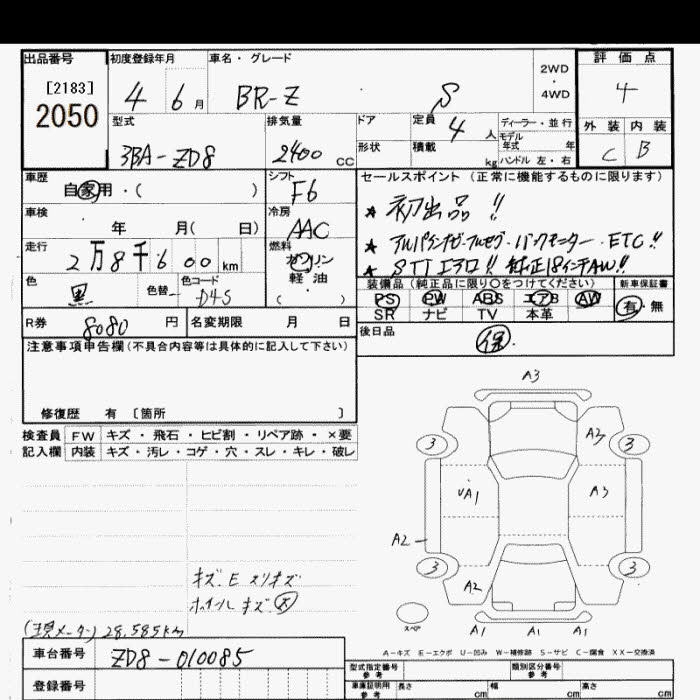 出品番号 初度登録年月 車名・グレード 評価点
[2183]
2050
4 6月 BR-Z S 2WD・4WD 4
型式 排気量 ドア 定員 4 人 ディーラー・並行 外装 内装
3BA-ZD8 2400 CC 形状 積載 kg モデル年式 年 ハンドル 左・右 C B
車歴 シフト セールスポイント (正常に機能するものに限ります)
自家用・( ) F6
★ 初出品!!
車検 冷房
年 月( 日) AAC
★ アルパインナビ・フルセグ・バックモニター・ETC!!
走行 燃料
2万8千600km ガソリン
軽・油
( )
★ STIエアロ!! 純正18インチAW!!
色 黒 色替 色コード D4S
装備品 (純正品に限り○をつけてください) 新車保証書
PS PW ABS エアB AW 有・無
SR ナビ TV 本革
R券 8080 円 名変期限 月 日
後日品 保.
注意事項申告欄(不具合内容等は具体的に記入して下さい)
修復歴 有 〔箇所 〕
検査員 FW キズ・飛石・ヒビ割・リペア跡・×要
記入欄 内装 キズ・汚レ・コゲ・穴・スレ・キレ・破レ
A3
3 A3 3
UA1 A3
A2
3 A2 3
スペア A1 A1 A1
キズ.E スリキズ
ホイールキズ 大
(現メーター) 28,585km
A-キズ E-エクボ U-凹み W-補修跡 S-サビ C-腐食 XX-交換済
車台番号 ZD8-010085
型式指定番号 参考 類別区分番号 参考
登録番号
車庫証明用 参考 長さ cm 幅 cm 高さ cm